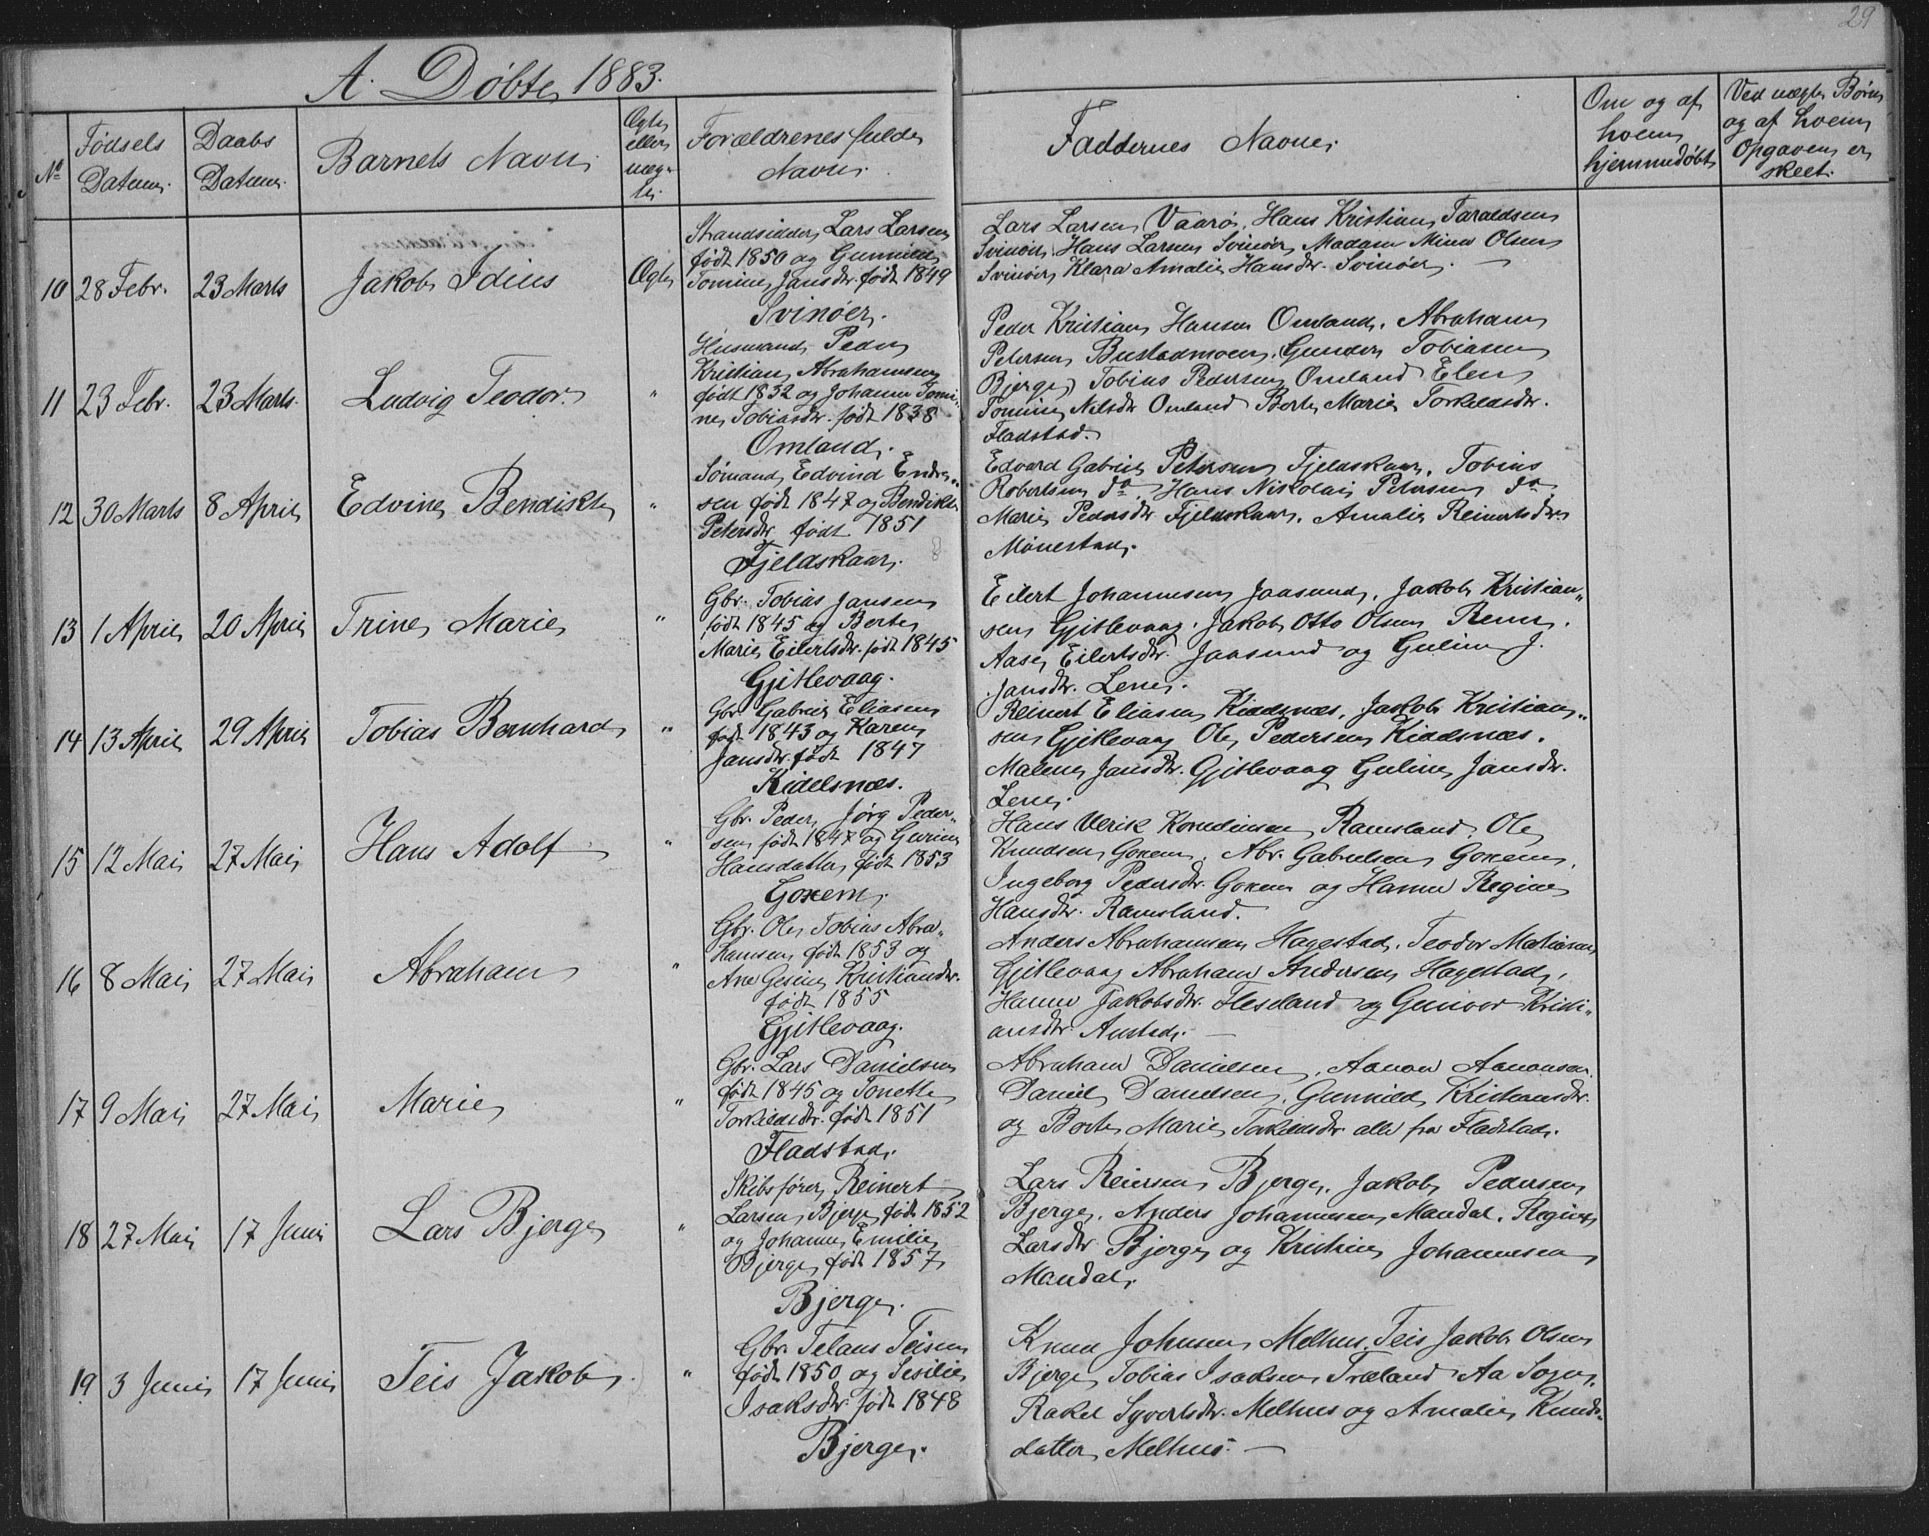 29
A. Døbte 1883.
No
Fødsels Datum.
Daabs Datum.
Barnets Navn.
Ægte eller uægte.
Forældrenes fulde Navn.
Faddernes Navne.
Om og af hvem hjemmedøbt
Ved uægte Børn og af hvem Opgaven er skeet.
10 28 Febr. 23 Marts Jakob Idius Ægte
Strandsidder Lars Larsen
født 1850 og Gunnild
Tomine Jansdr. født 1849
Svinøer.
Lars Larsen Vaarø, Hans Kristian Taraldsen
Svinøer, Hans Larsen Svinøer, Madam Mina Olsen
Svinøer, Klara Amalie Hansdr. Svinøer. —
11 23 Febr. 23 Marts. Ludvig Teodor. "
Husmand Peder
Kristian Abrahamsen
født 1832 og Johanne Tomi-
ne Tobiasdr. født 1838
Omland.
Peder Kristian Hansen Omland, Abraham
Petersen Bustadmoen, Gunder Tobiasen
Bjerge, Tobias Pedersen Omland Elen
Tomine Nilsdr Omland Berte Marie Torkeldsdr.
Fladstad.
12 30 Marts 8 April Edvine Bendikte "
Sømand Edvind Endre-
sen født 1847 og Bendikte
Petersdr født 1851
Fjeldskaar.
Edvard Gabriel Petersen Fjeldskaar, Tobias
Robertsen do, Hans Nikolai Petersen do
Marie Pedersdr Fjeldskaar, Amalie Reinertsdr
Mønestad.
13 1 April 20 April Trine Marie "
Gbr. Tobias Jansen
født 1845 og Berte
Marie Eilertsdr. født 1845
Gjitlevaag.
Eilert Johannesen Jaasund, Jakob Kristian-
sen Gjitlevaag, Jakob Otto Olsen Renn,
Aase Eilertsdr. Jaasund og Guline J.
Jansdr. Lene.
14 13 April 29 April Tobias Bernhard "
Gbr. Gabriel Eliasen
født 1843 og Karen
Jansdr. født 1847
Kidelsnæs.
Reinert Eliasen Kiddsnæs, Jakob Kristian-
sen Gjitlevaag Ole Pedersen Kiddsnæs.
Malene Jansdr. Gjitlevaag Guline Jansdr.
Lene.
15 12 Mai 27 Mai Hans Adolf "
Gbr. Peder Jørg Peder-
sen født 1847 og Gurine
Hansdatter født 1853
Goxem.
Hans Ulrik Korneliusen Ramsland, Ole
Knudsen Goxem, Abr. Gabrielsen Goxem,
Ingeborg Pedersdr. Goxem og Hanne Regine
Hansdr. Ramsland.
16 8 Mai 27 Mai Abraham "
Gbr. Ole Tobias Abra-
hamsen født 1853 og
Ane Gesine Kristiansdr.
født 1855
Gjitlevaag.
Anders Abrahamsen Hagestad, Teodor Matiasen
Gjitlevaag Abraham Andersen Hagestad,
Hanne Jakobsdr. Fleseland og Gunvor Kristi-
ansdr. Austad. —
17 9 Mai 27 Mai Marie "
Gbr. Lars Danielsen
født 1845 og Tonette
Torkildsdr. født 1851
Fladstad.
Abraham Danielsen, Aanon Aanonsen.
Daniel Danielsen, Gunnild Kristiansdr.
og Berte Marie Torkildsdr alle fra Fladstad.
18 27 Mai 17 Juni Lars Bjerge "
Skibsfører Reinert
Larsen Bjerge født 1852
og Johanne Emilie
Bjerge født 1857
Bjerge.
Lars Reiersen Bjerge, Jakob Pedersen
Bjerge, Anders Johannesen Mandal, Regine
Larsdr Bjerge og Kristine Johannesen
Mandal.
19 3 Juni 17 Juni Teis Jakob. "
Gbr. Telaus Teisen
født 1850 og Sesilie
Isaksdr. født 1848
Bjerge.
Knud Johnsen Melhus, Teis Jakob Olsen
Bjerge Tobias Isaksen Træland Aa Sogn,
Rakel Syvertsdr. Melhus og Amalie Knuds-
datter Melhus. —